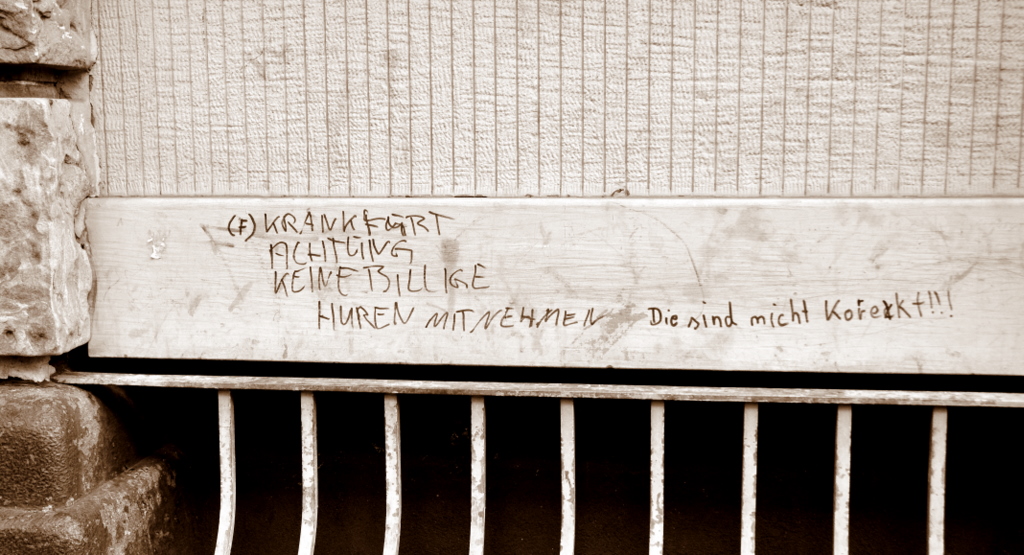 (F) KRANKFURT
ACHTUNG
KEINE BILLIGE
HUREN MITNEHMEN Die sind micht Korekt!!!